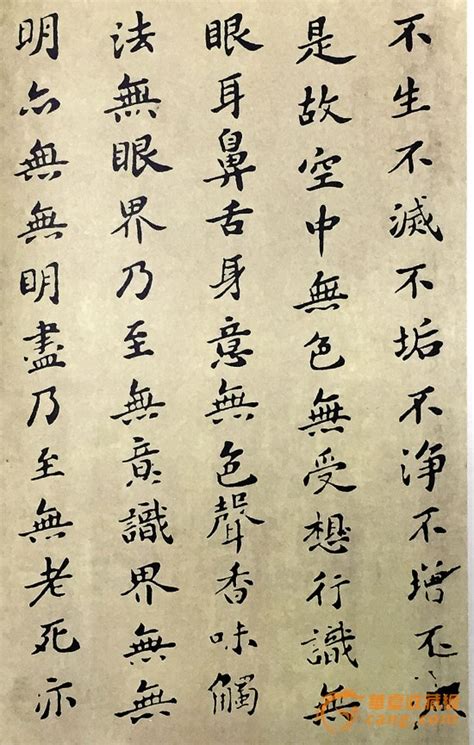 不生不滅不垢不淨不增不
是故空中無色無受想行識無
眼耳鼻舌身意無色聲香味觸
法無眼界乃至無意識界無無
明亦無無明盡乃至無老死亦
cang.com